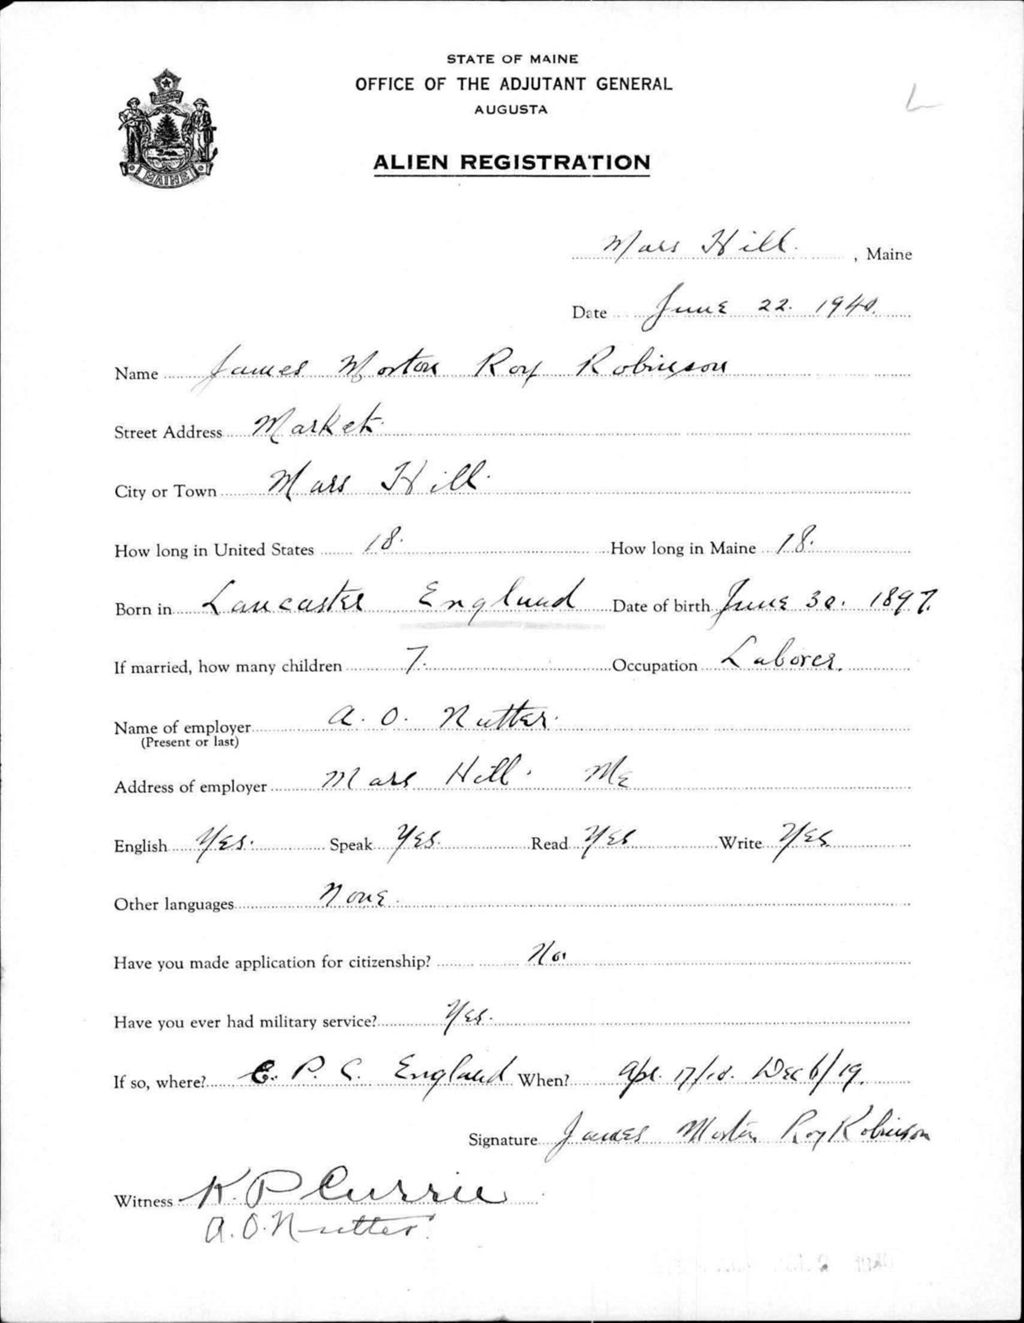 STATE OF MAINE
OFFICE OF THE ADJUTANT GENERAL
AUGUSTA
ALIEN REGISTRATION
MAINE
Mars Hill. , Maine
Date June 22. 1940.
Name James Morton Roy Robinson
Street Address Market.
City or Town Mars Hill.
How long in United States 18. How long in Maine 18.
Born in Lancaster England Date of birth June 30. 1897.
If married, how many children 7. Occupation Laborer.
Name of employer A. O. Nutter.
(Present or last)
Address of employer Mars Hill. Me
English Yes. Speak Yes. Read Yes Write Yes
Other languages None.
Have you made application for citizenship? No.
Have you ever had military service? Yes.
If so, where? P. C. England When? Apr. 17/18. Dec 6/19.
Signature James Morton Roy Robinson
Witness K. P. Currie
A. O. Nutter.